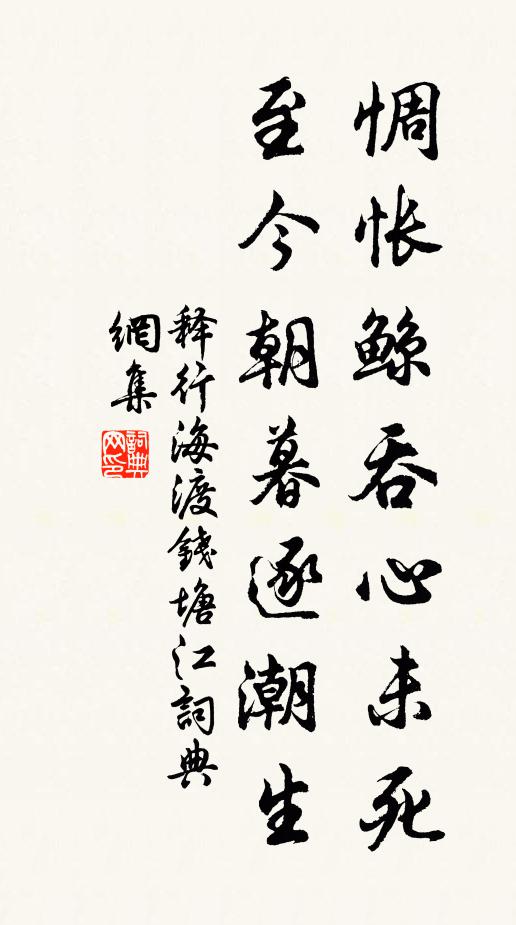 惆怅鲸吞心未死
至今朝暮逐潮生
释行海渡錢塘江詞典
網集
詞典
网印